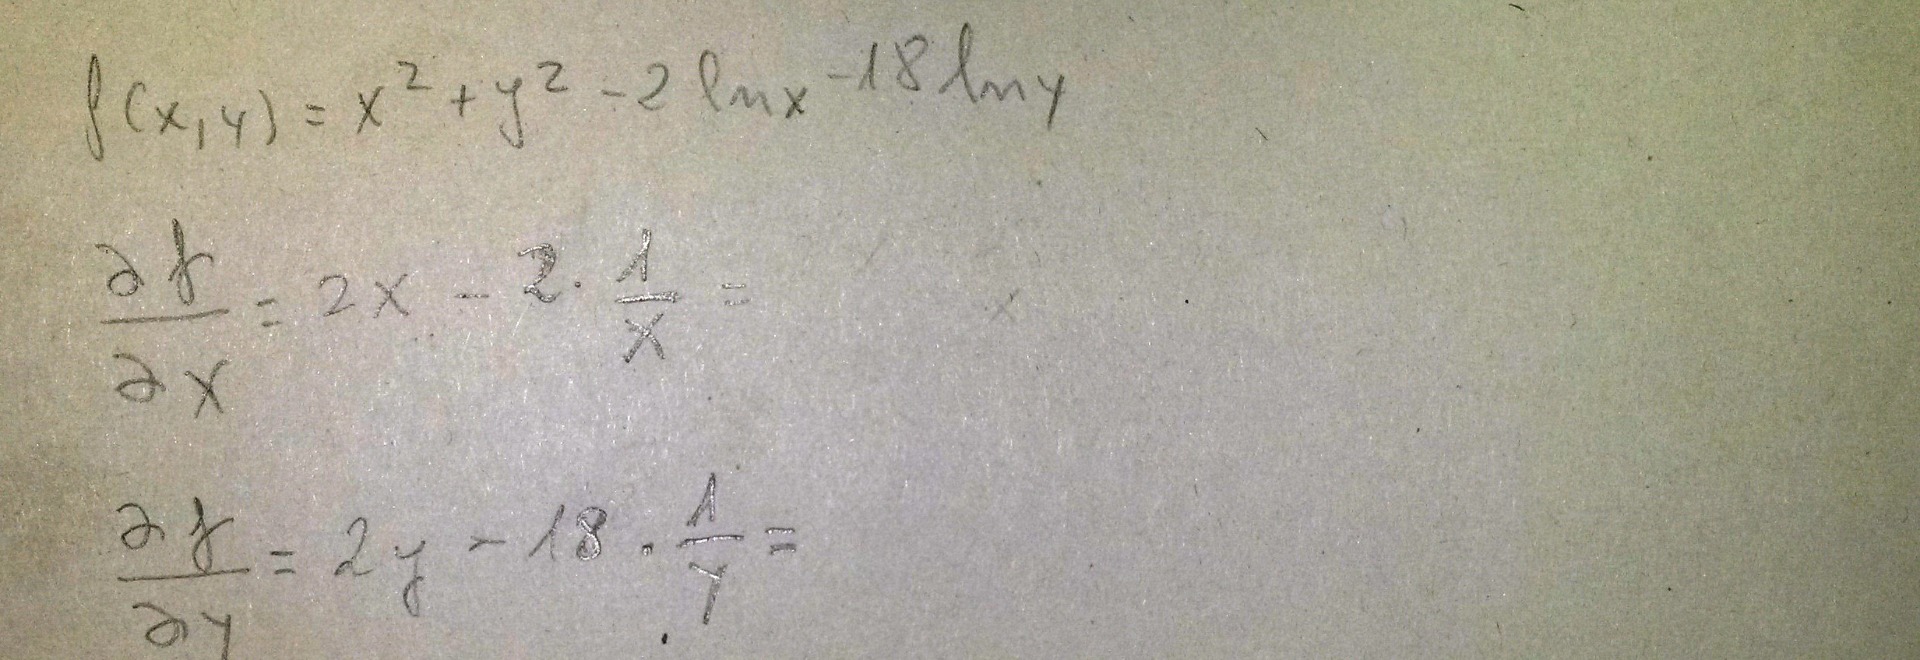 f(x,y) = x² + y² - 2 ln x - 18 ln y
∂f/∂x = 2x - 2 · 1/x =
∂f/∂y = 2y - 18 · 1/y =